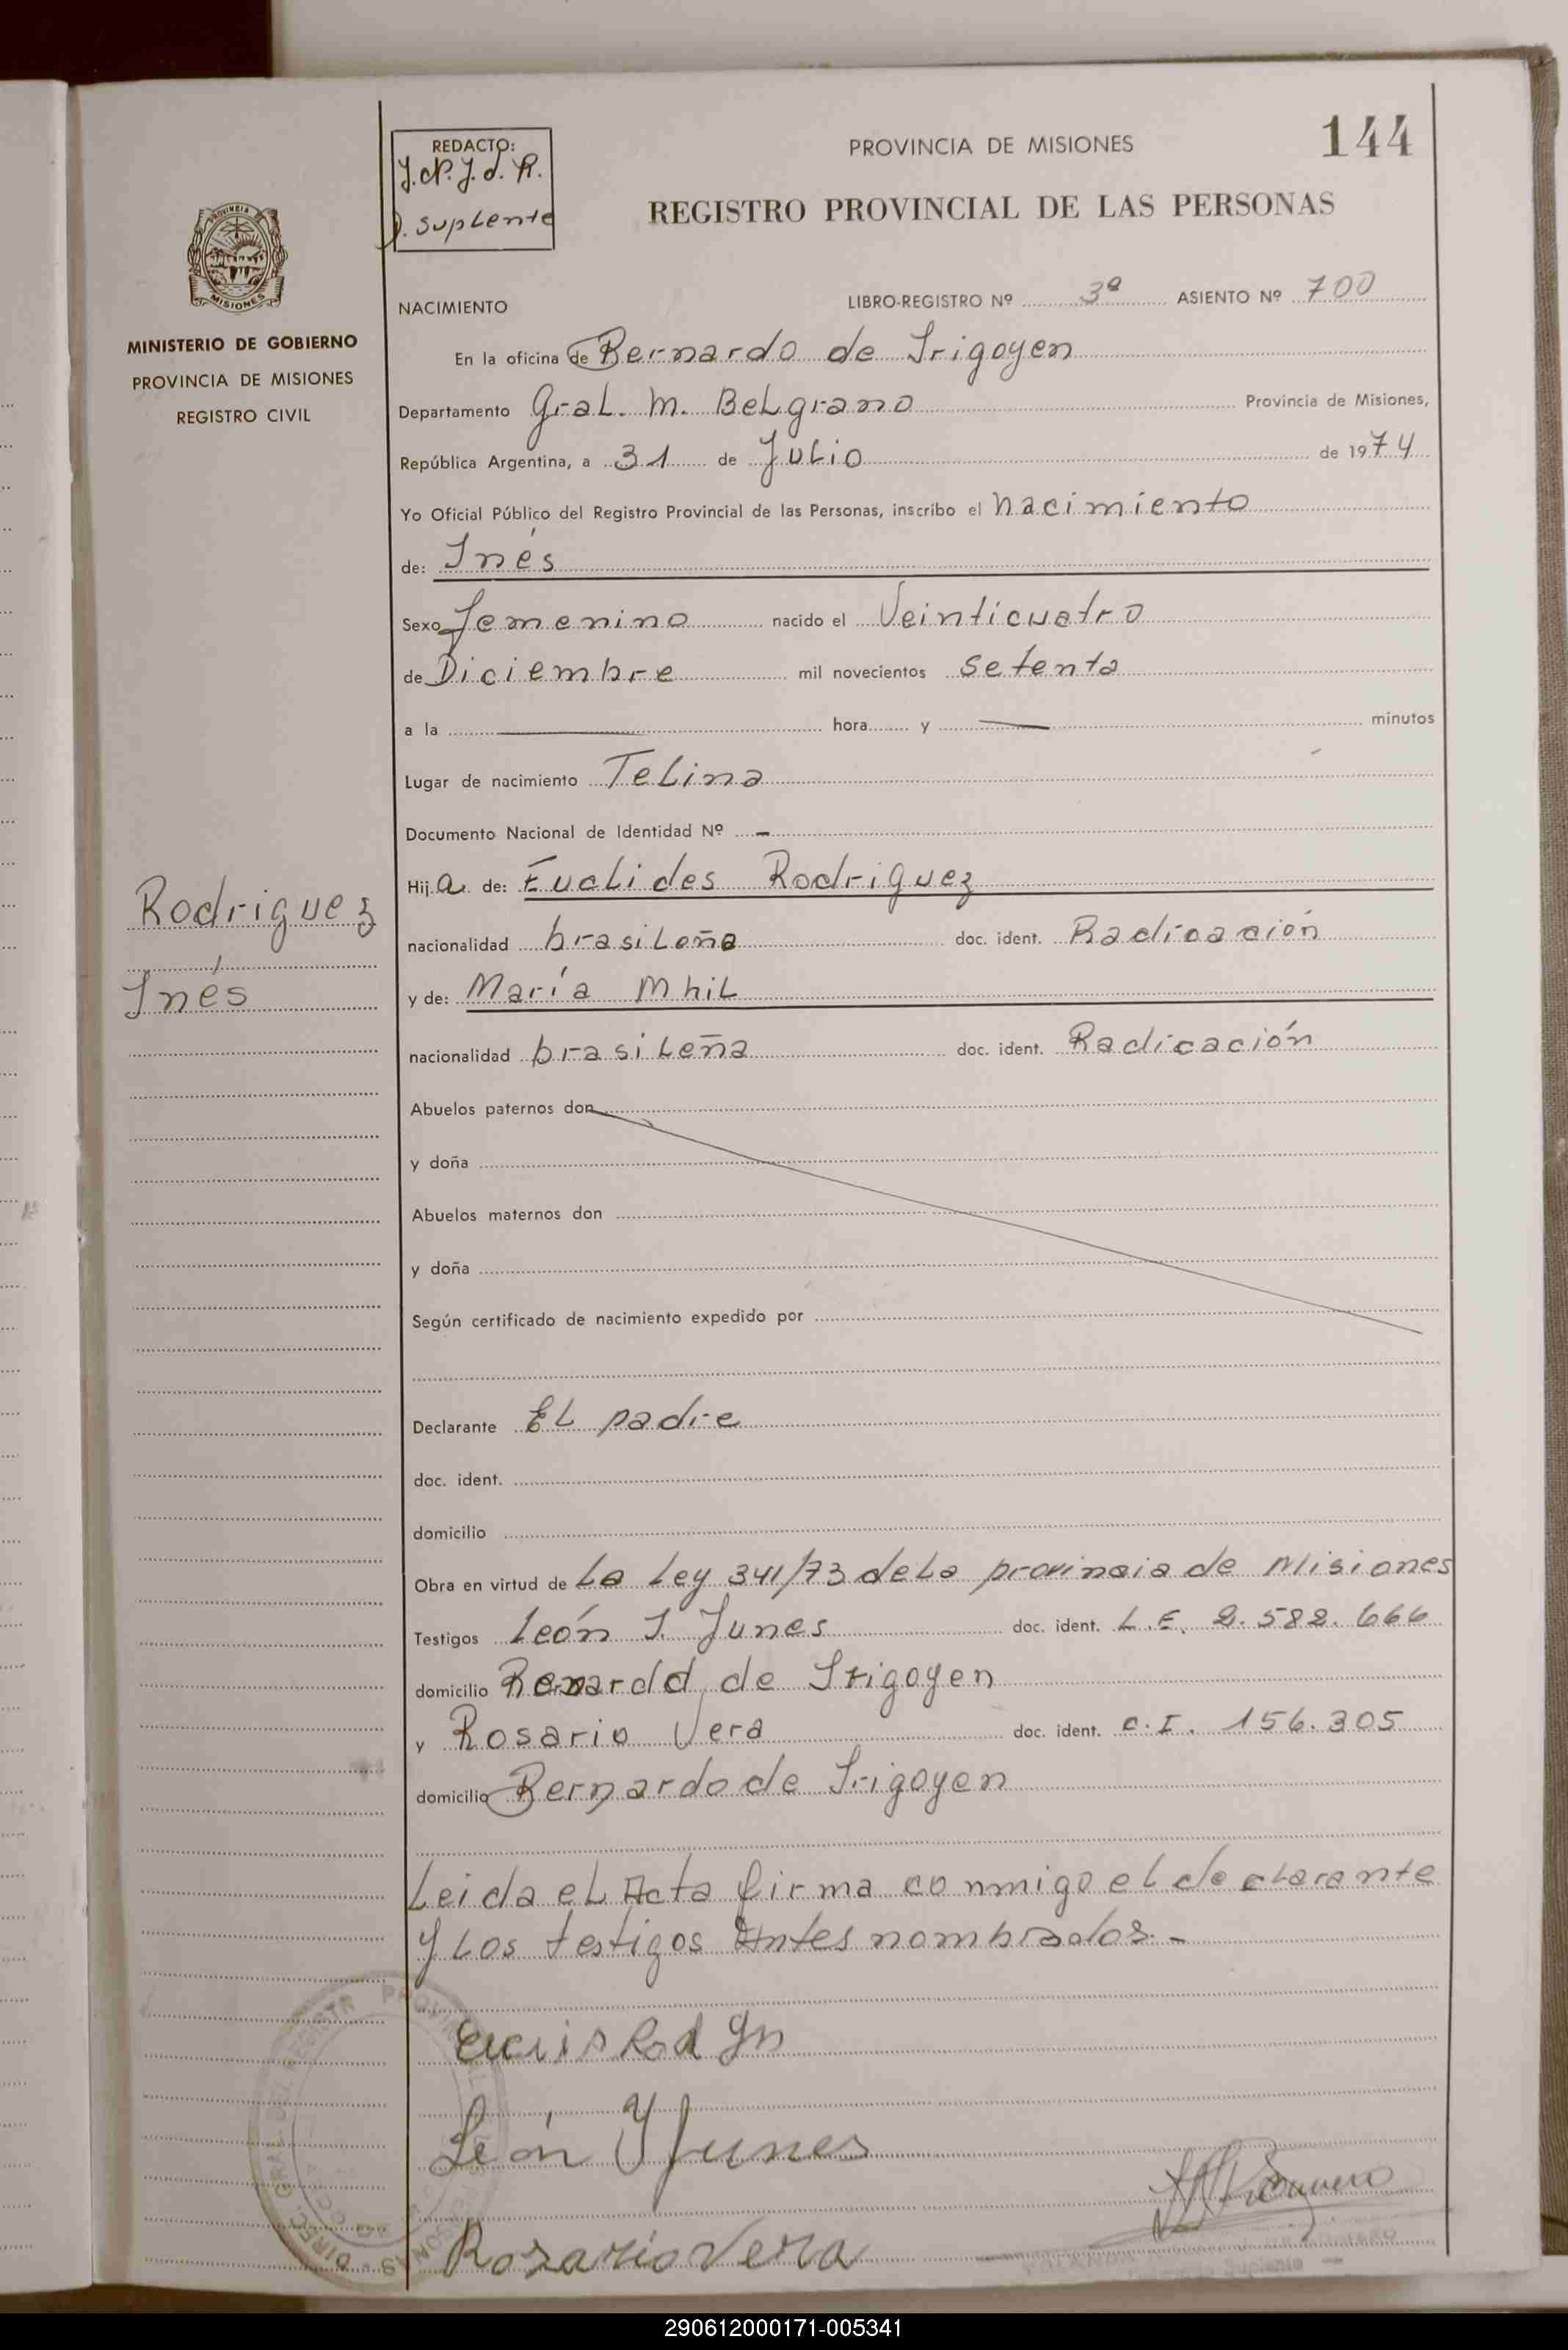 144
REDACTO:
J. N. J. d. R.
D. suplente
PROVINCIA DE MISIONES
REGISTRO PROVINCIAL DE LAS PERSONAS
PROVINCIA DE
MISIONES
MINISTERIO DE GOBIERNO
PROVINCIA DE MISIONES
REGISTRO CIVIL
NACIMIENTO LIBRO-REGISTRO Nº 3º ASIENTO Nº 700
En la oficina de Bernardo de Irigoyen
Departamento Gral. M. Belgrano Provincia de Misiones,
República Argentina, a 31 de Julio de 1974
Yo Oficial Público del Registro Provincial de las Personas, inscribo el nacimiento
de: Inés
Sexo femenino nacido el Veinticuatro
de Diciembre mil novecientos setenta
a la — hora y — minutos
Lugar de nacimiento Telina
Documento Nacional de Identidad Nº -
Hija de: Euclides Rodriguez
Rodriguez
nacionalidad brasileña doc. ident. Radicación
Inés
y de: María Mhil
nacionalidad brasileña doc. ident. Radicación
Abuelos paternos don
y doña
Abuelos maternos don
y doña
Según certificado de nacimiento expedido por
Declarante El padre
doc. ident.
domicilio
Obra en virtud de La Ley 341/73 de la provincia de Misiones
Testigos León I. Junes doc. ident. L.E. 2.582.666
domicilio Bernardo de Irigoyen
y Rosario Vera doc. ident. C.I. 156.305
domicilio Bernardo de Irigoyen
Leida el Acta firma conmigo el declarante
y los testigos antes nombrados.-
León Y Junes
Rosario Vera
Suplente
290612000171-005341